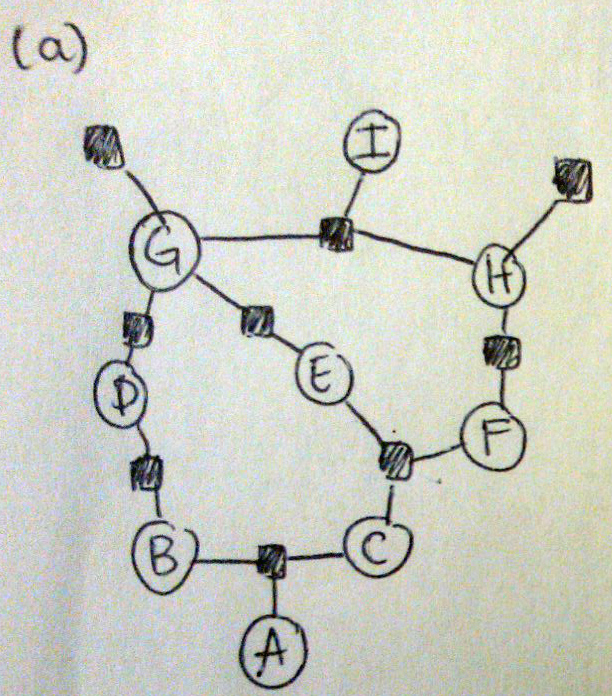 (a)
I
G
H
E
D
F
B
C
A